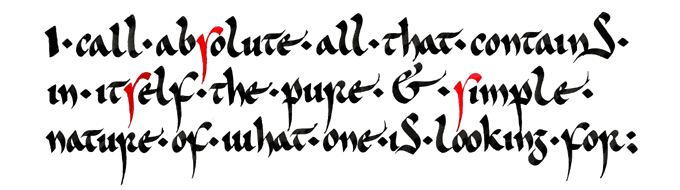 I·call·abſolute·all·that·containS·
in·itſelf·the·pure·&·ſimple·
nature·of·what·one·iS·looking·for: